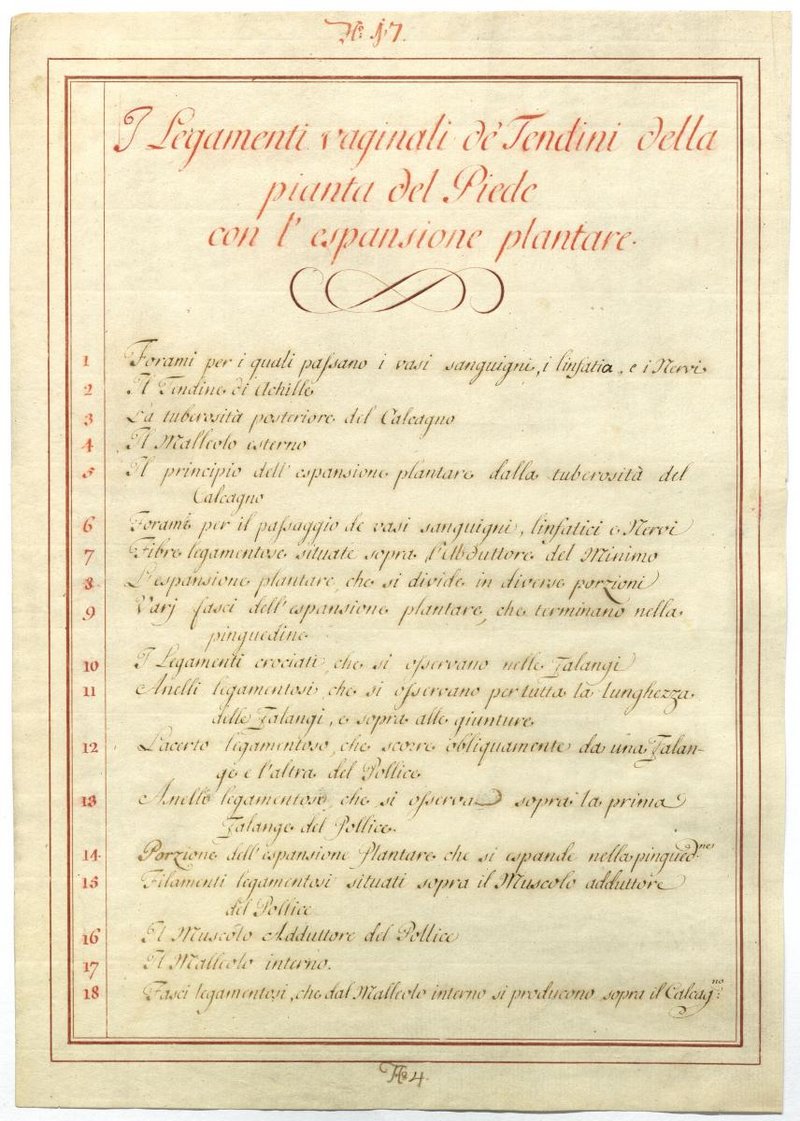 No. 17.
I Legamenti vaginali de' Tendini della
pianta del Piede
con l' espansione plantare.
1 Forami per i quali passano i vasi sanguigni, i linfatia, e i Nervi
2 Il Tendine di Achille
3 La tuberosità posteriore del Calcagno
4 Il Malleolo esterno
5 Il principio dell' espansione plantare dalla tuberosità del
Calcagno
6 Forami per il passaggio de vasi sanguigni, linfatici e Nervi
7 Fibre legamentose situate sopra l'Abduttore del Minimo
8 L'espansione plantare, che si divide in diverse porzioni
9 Varj fasci dell'espansione plantare, che terminano nella
pinguedine
10 I Legamenti crociati, che si osservano nelle Falangi
11 Anelli legamentosi, che si osservano per tutta la lunghezza
delle Falangi, e sopra alle giunture
12 Lacerto legamentoso, che scorre obliquamente da una Falan-
ge e l'altra del Pollice
13 Anello legamentoso, che si osserva sopra la prima
Falange del Pollice.
14. Porzione dell'espansione Plantare che si espande nella pingued.ne
15 Filamenti legamentosi situati sopra il Muscolo adduttore
del Pollice
16 Il Muscolo Adduttore del Pollice
17 Il Malleolo interno.
18 Fasci legamentosi, che dal Malleolo interno si producono sopra il Calcag:no
No. 4.